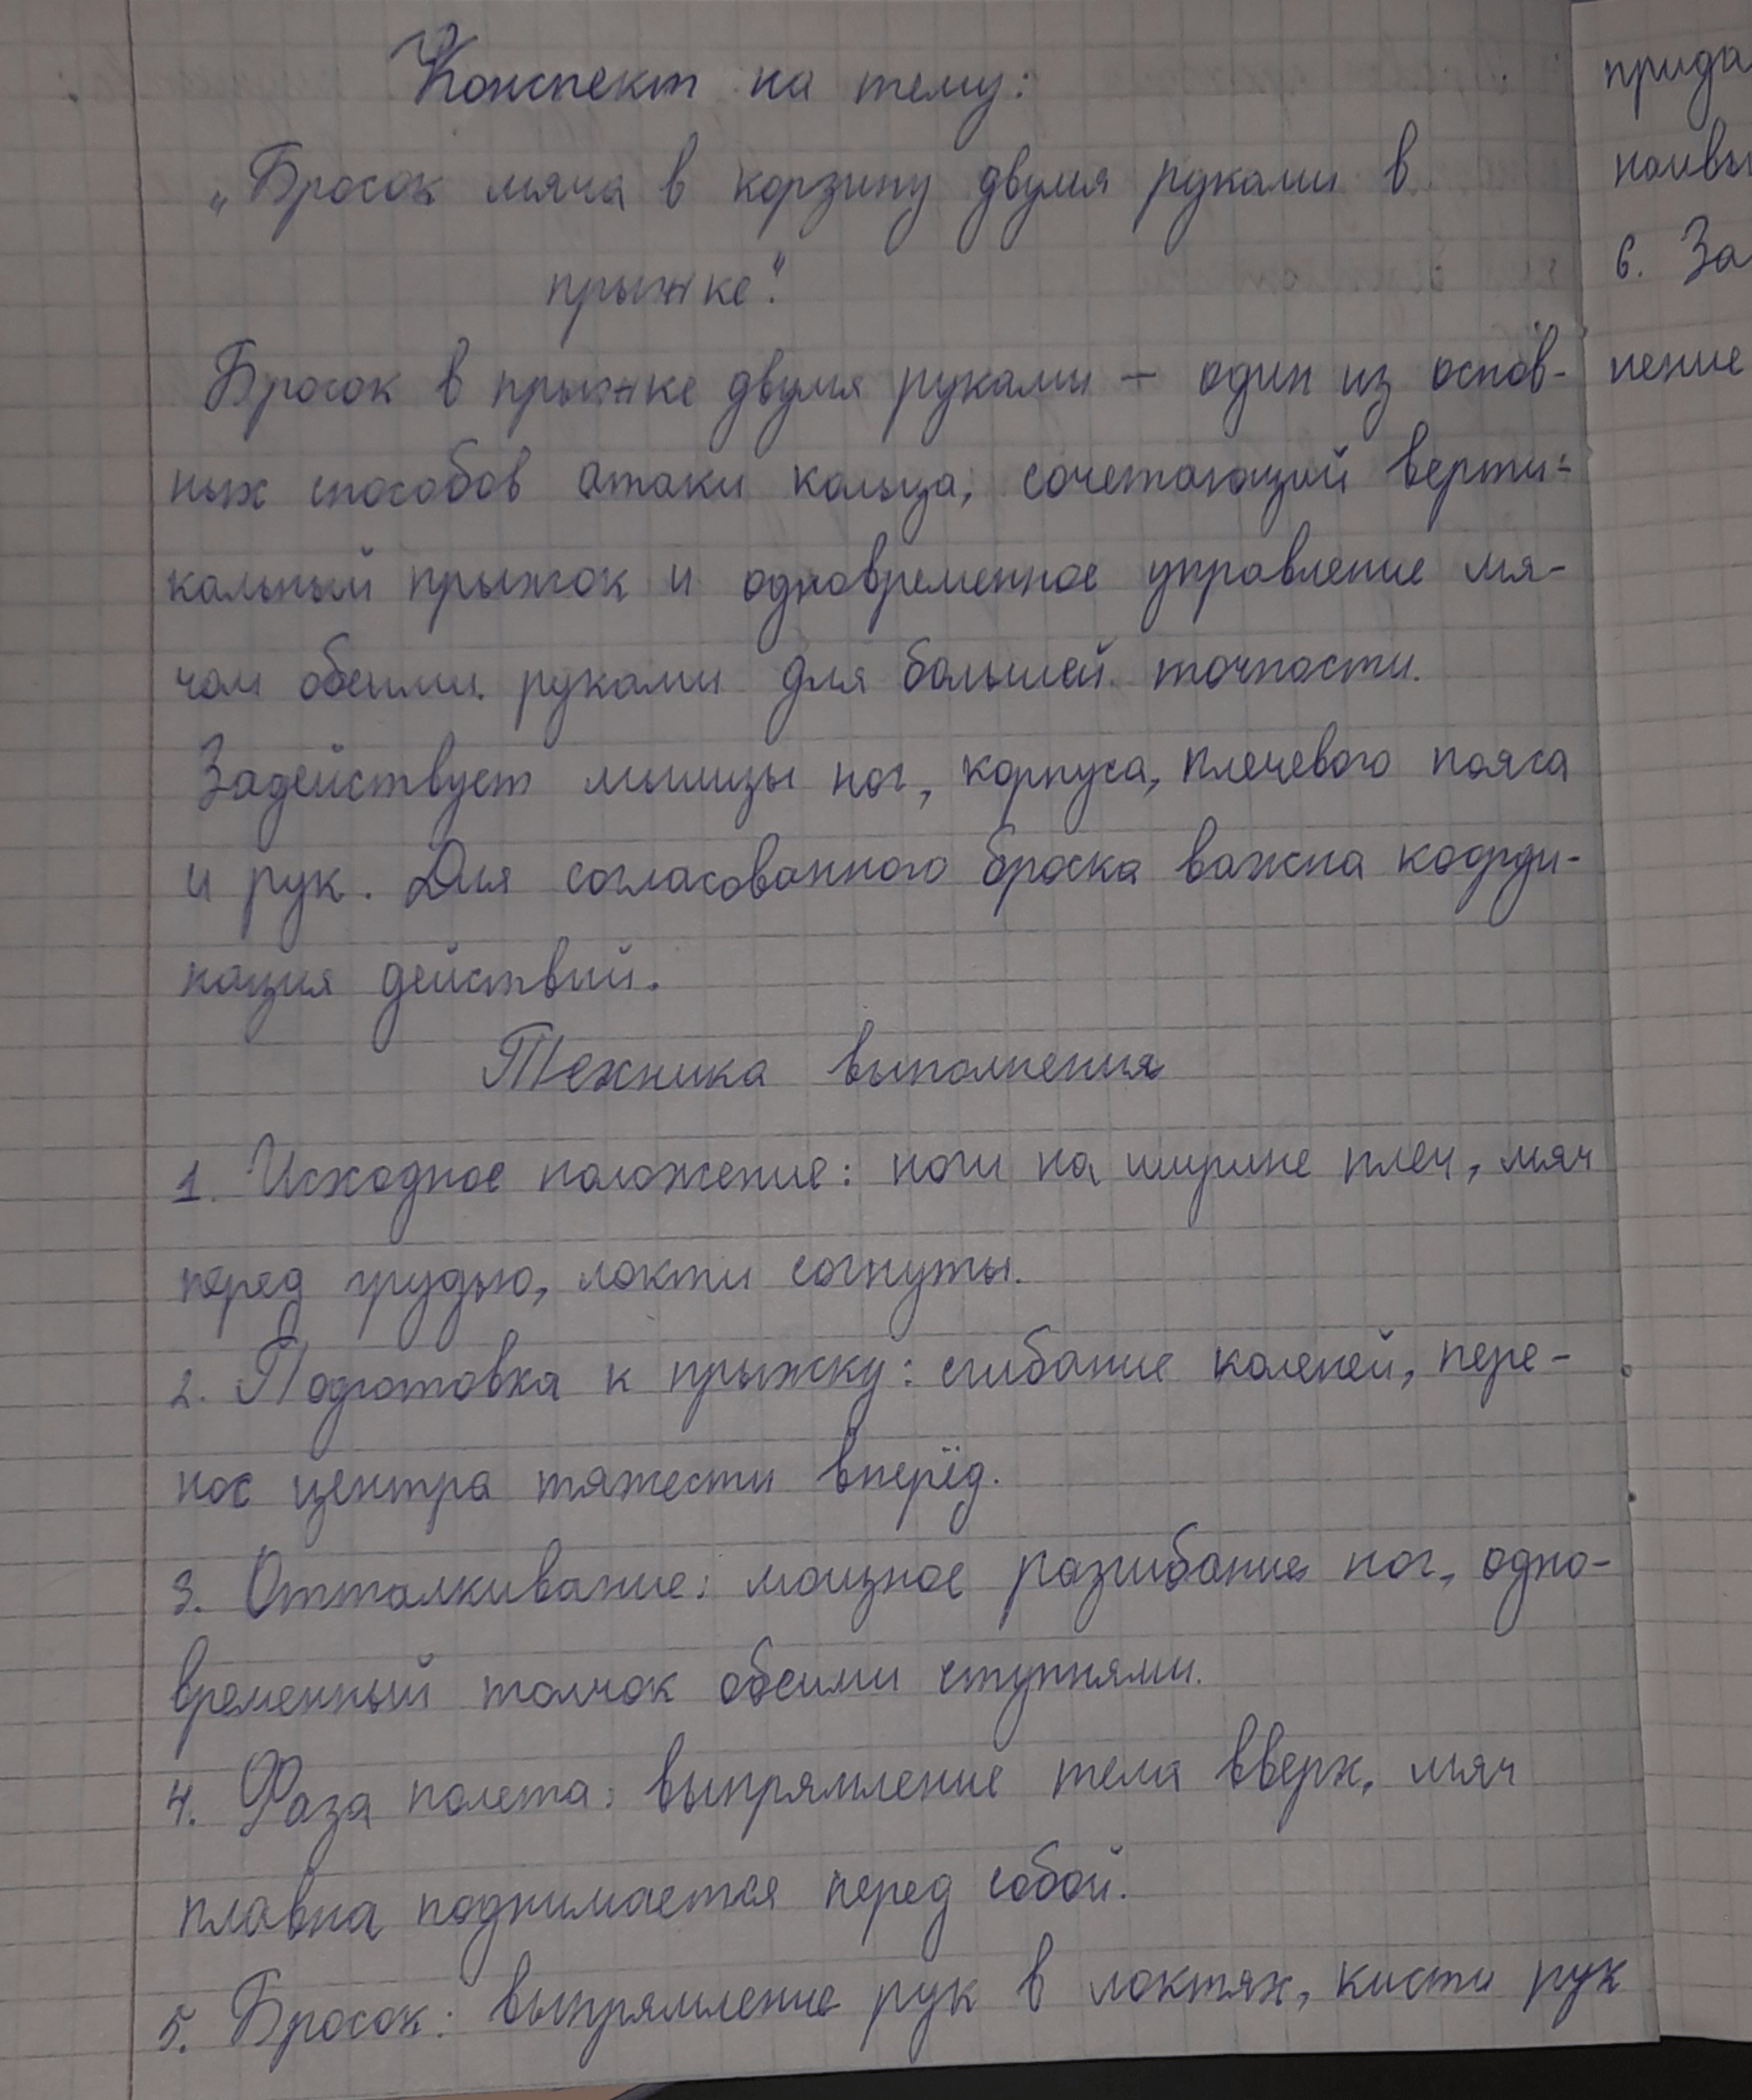 Конспект на тему:
„Бросок мяча в корзину двумя руками в
прыжке".
Бросок в прыжке двумя руками — один из основ-
ных способов атаки кольца, сочетающий верти-
кальный прыжок и одновременное управление мя-
чом обеими руками для большей точности.
Задействует мышцы ног, корпуса, плечевого пояса
и рук. Для согласованного броска важна коорди-
нация действий.
Техника выполнения
1. Исходное положение: ноги на ширине плеч, мяч
перед грудью, локти согнуты.
2. Подготовка к прыжку: сгибание коленей, пере-
нос центра тяжести вперёд.
3. Отталкивание: мощное разгибание ног, одно-
временный толчок обеими ступнями.
4. Фаза полета: выпрямление тела вверх, мяч
плавна поднимается перед собой.
5. Бросок: выпрямление рук в локтях, кисти рук
прида
наивы
6. За
нение